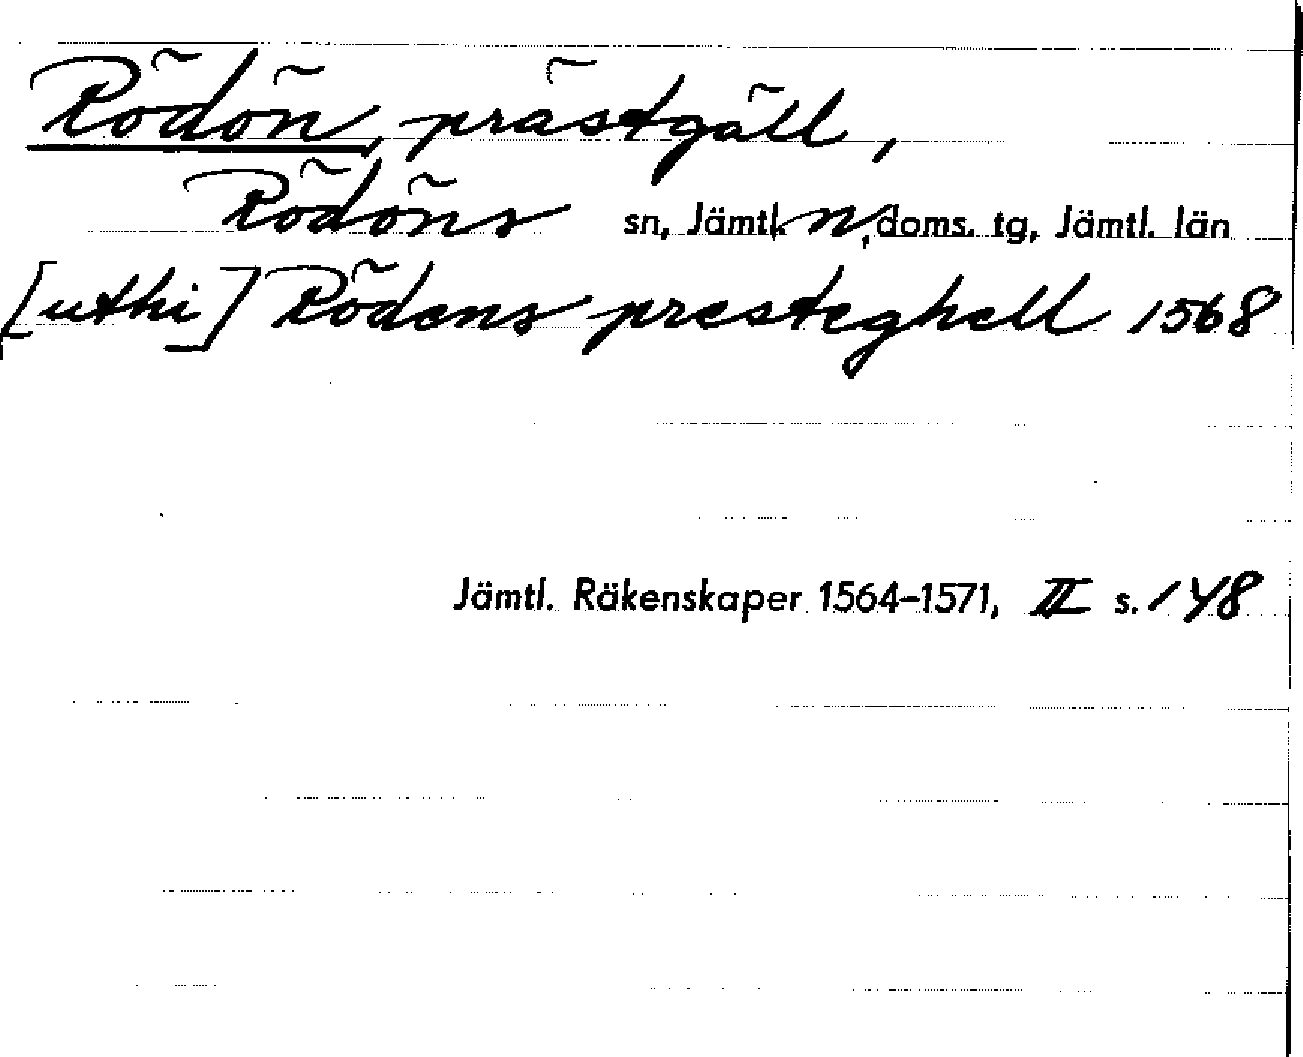 Rödön, prästgäll,
Rödöns sn, Jämtl. n, doms. tg, Jämtl. län
[uthi] Rödens presteghell 1568
Jämtl. Räkenskaper 1564-1571, II s. 148